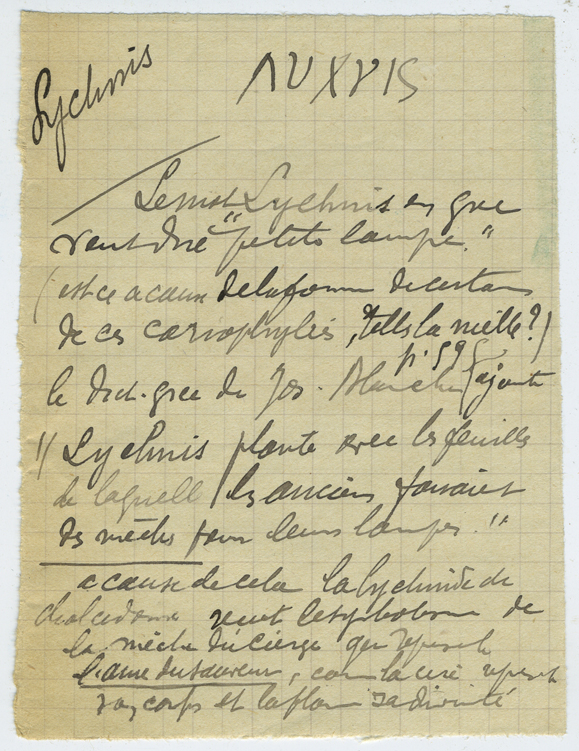 Lychnis
ΛΥΧΝΙS
Le mot Lychnis en grec
veut dire "petite lampe."
(est ce a cause de la forme de certains
de ces cariophylées, telle la nielle?)
p. 595
le dict. grec de Jos. Planche ajoute
"Lychnis plante avec les feuilles
de laquelle les anciens faisaient
des mèches pour leurs lampes."
a cause de cela la lychnide de
chalcedoine le symbolisme de
la mèche du cierge qui représente
l'ame du sauveur, comme la cire représente
son corps et la flamme sa divinité